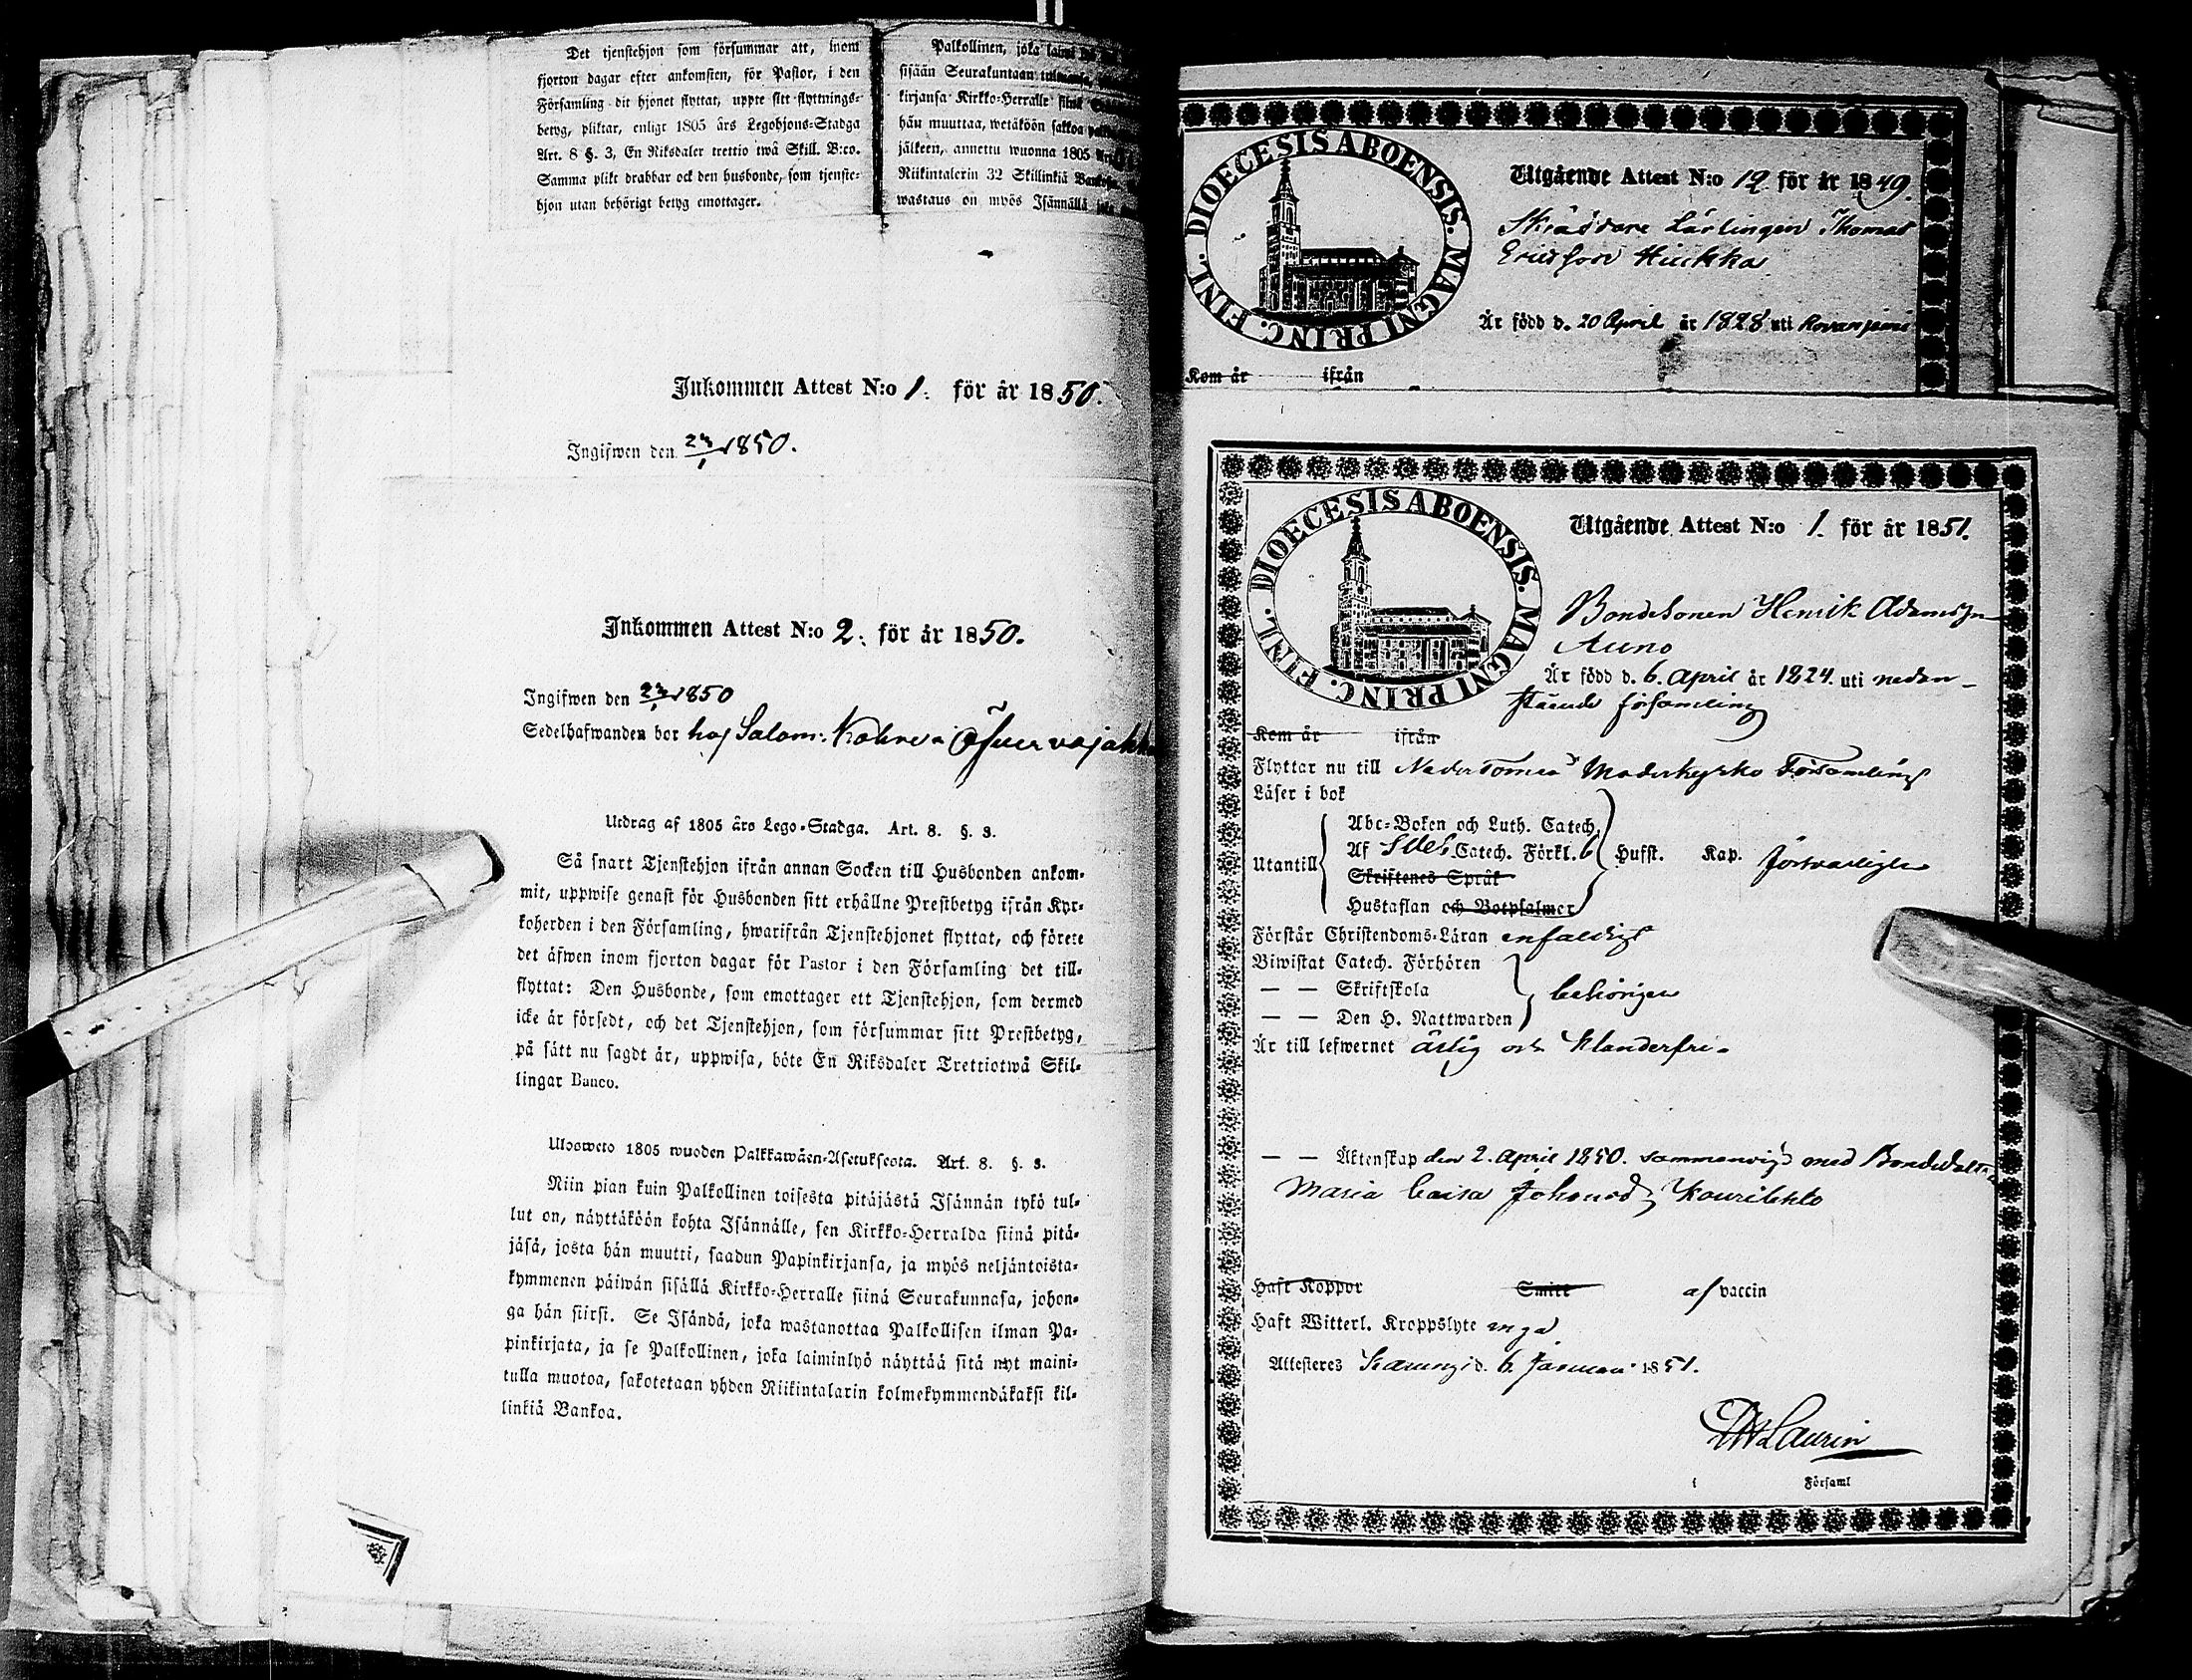 Det tjenstehjon som försummar att, inom
fjorton dagar efter ankomsten, för Pastor, i den
Församling dit hjonet flyttat, uppte sitt flyttnings-
betyg, pliktar, enligt 1805 års Legohjons-Stadga
Art. 8 §. 3, En Riksdaler trettio twå Skill. B:co.
Samma plikt drabbar ock den husbonde, som tjenste-
hjon utan behörigt betyg emottager.
Palkollinen, joka
sisään Seurakuntaan
kirjansa Kirkko-Herralle
hän muuttaa, wetäköön sakkoa
jälkeen, annettu wuonna 1805
Riikintalerin 32 Skillinkiä
wastaus on myös Isännällä joka
Inkommen Attest N:o 1. för år 1850.
Ingifwen den 1850.
Inkommen Attest N:o 2. för år 1850.
Ingifwen den 1850
Sedelhafwanden bor hos Salom:
Utdrag af 1805 års Lego-Stadga. Art. 8. §. 3.
Så snart Tjenstehjon ifrån annan Socken till Husbonden ankom-
mit, uppwise genast för Husbonden sitt erhållne Prestbetyg ifrån Kyr-
koherden i den Församling, hwarifrån Tjenstehjonet flyttat, och förete
det äfwen inom fjorton dagar för Pastor i den Församling det till-
flyttat: Den Husbonde, som emottager ett Tjenstehjon, som dermed
icke är försedt, och det Tjenstehjon, som försummar sitt Prestbetyg,
på sätt nu sagdt är, uppwisa, böte En Riksdaler Trettiotwå Skil-
lingar Banco.
Ulosweto 1805 wuoden Palkkawäen-Asetuksesta. Art. 8. §. 3.
Niin pian kuin Palkollinen toisesta pitäjästä Isännän tykö tul-
lut on, näyttäköön kohta Isännälle, sen Kirkko-Herralda siinä pitä-
jäsä, josta hän muutti, saadun Papinkirjansa, ja myös neljäntoista-
kymmenen päiwän sisällä Kirkko-Herralle siinä Seurakunnasa, johon-
ga hän siirsi. Se Isändä, joka wastanottaa Palkollisen ilman Pa-
pinkirjata, ja se Palkollinen, joka laiminlyö näyttää sitä nyt maini-
tulla muotoa, sakotetaan yhden Riikintalarin kolmekymmendäkaksi kil-
linkiä Bankoa.
DIOECESIS ABOENSIS. MAGNI PRINC. FINL.
Utgående Attest N:o 12. för år 1849.
Skräddare Lärlingen Thomas
Ericsson Hiukka
Är född d. 20 April år 1828 uti Rovaniemi
Kom år ifrån
DIOECESIS ABOENSIS. MAGNI PRINC. FINL.
Utgående Attest N:o 1. för år 1851.
Bondesonen Henrik Adamsson
Auno
Är född d. 6. April år 1824. uti nedan-
stående församling
Kom år ifrån
Flyttar nu till NederTorneå Moderkyrko Församling
Läser i bok
Utantill
Abc-Boken och Luth. Catech.
Af Catech. Förkl. 6 Hufst. Kap. försvarligen
Skriftenes Språk
Hustaflan och Botpsalmer
Förstår Christendoms-Läran enfaldigt
Biwistat Catech. Förhören
— — Skriftskola behörigen
— — Den H. Nattwarden
Är till lefwernet ärlig och klanderfri.
— — Äktenskap den 2. April 1850. sammanvigd med Bondedottren
Maria Caisa Johansd.
Haft Koppor Smitt af vaccin
Haft Witterl. Kroppslyte inga
Attesteres Karungi d. 6. Januari 1851.
Laurin
i Församl